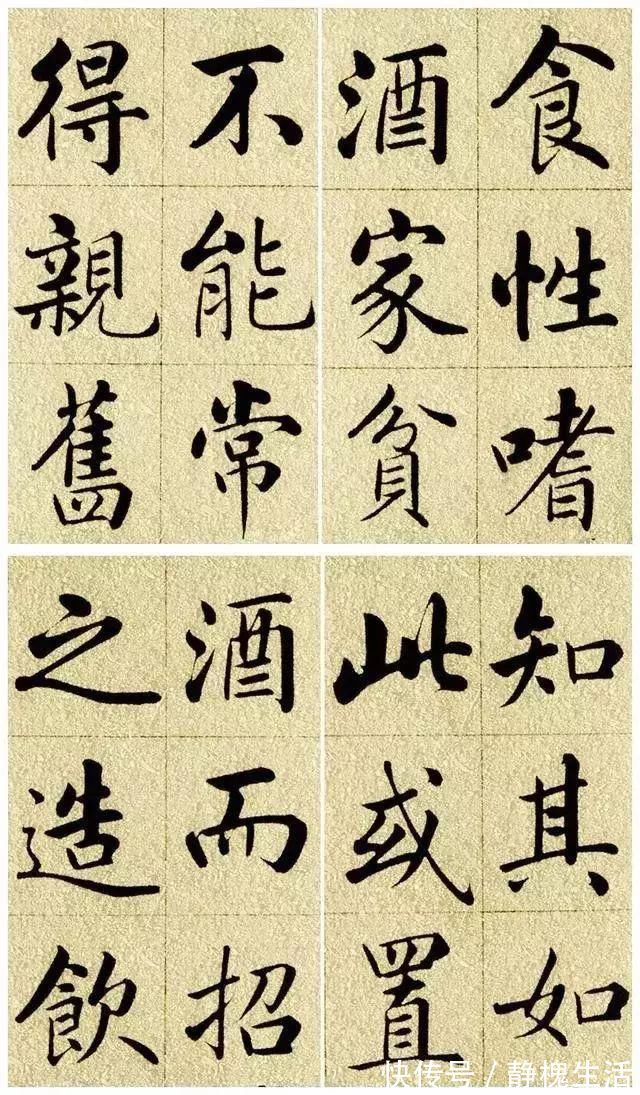 食性嗜
酒家貧
不能常
得親舊
知其如
此或置
酒而招
之造飲
快传号/静槐生活